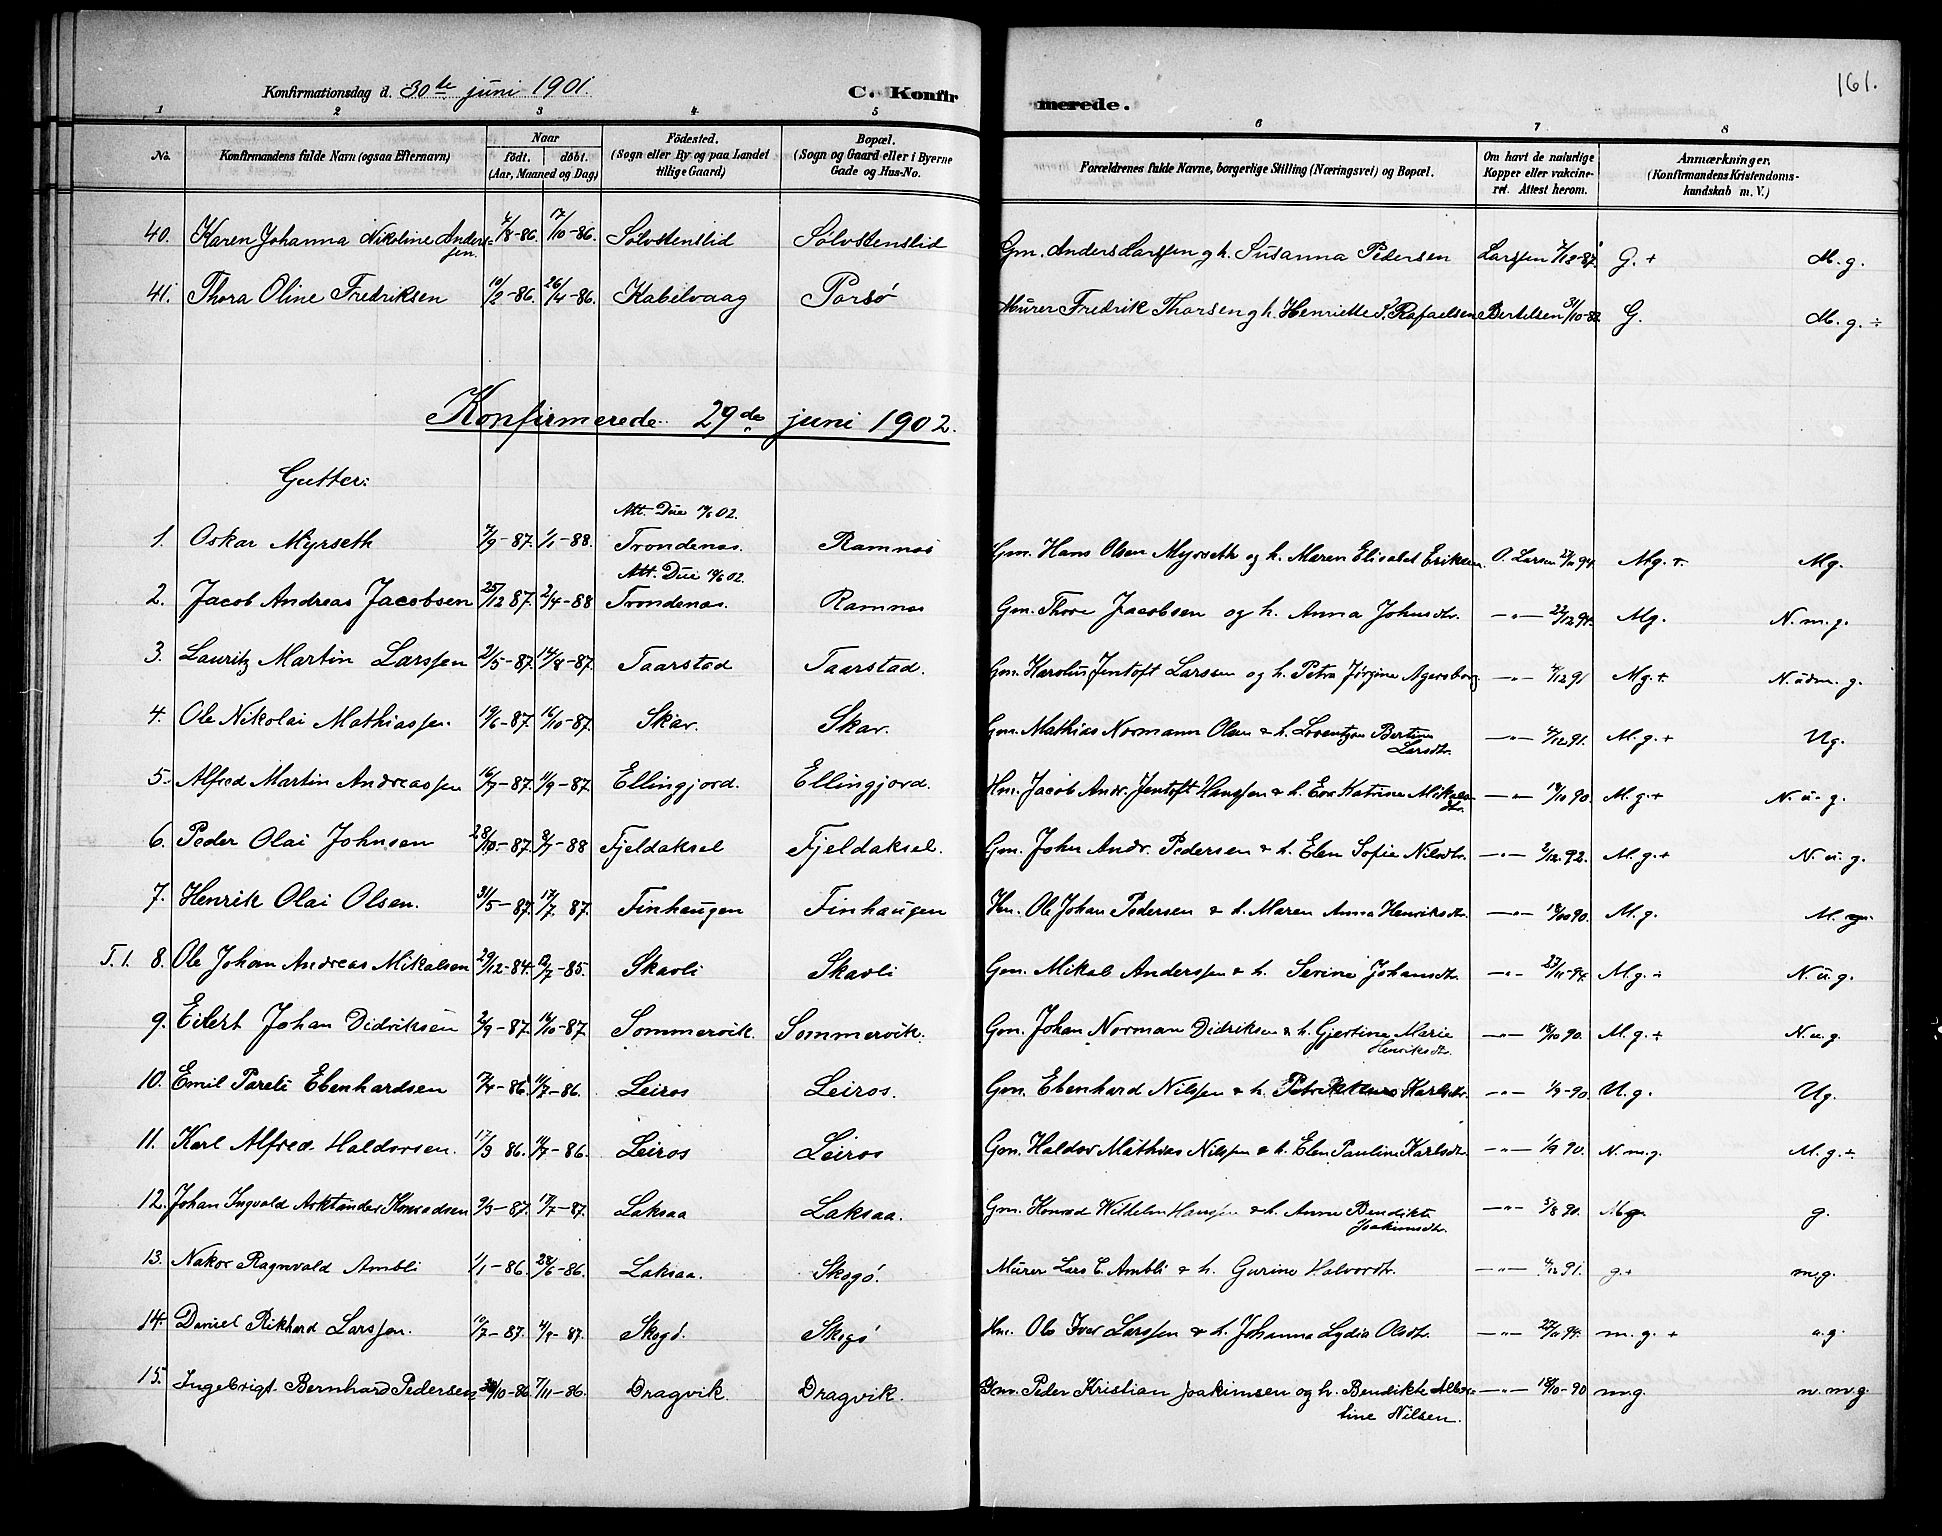 Konfirmationsdag d. 30te juni 1901. C. Konfirmerede. 161.
1 2 3 4 5 6 7 8
No. Konfirmandens fulde Navn (ogsaa Efternavn) Naar født. døbt. (Aar, Maaned og Dag) Fødested. (Sogn eller By og paa Landet tillige Gaard) Bopæl. (Sogn og Gaard eller i Byerne Gade og Hus-No. Forældrenes fulde Navne, borgerlige Stilling (Næringsvei) og Bopæl. Om havt de naturlige Kopper eller vaccineret. Attest herom. Anmærkninger. (Konfirmandens Kristendomskundskab m. V.)
40. Karen Johanna Nikoline Anderssen. 7/8-86. 17/10-86. Sølvstenslid Sølvstenslid Gm. Anders Larssen g h. Susanna Pedersen Larssen G. + M. g.
41. Thora Oline Fredriksen 10/2-86. 26/4-86. Kabelvaag Porsø Murer Fredrik Thorsen g h. Henriette Rafaelsen Bertelsen 31/10 G. M. g. ÷
Konfirmerede 29de juni 1902.
Gutter:
1. Oskar Myrseth 7/9-87. 1/1-88. Att. Due 02. Trondenæs. Ramnæs Gm. Hans Olsen Myrseth og h. Maren Elisabet Eriksen. O. Larsen 94. Mg. + Mg.
2. Jacob Andreas Jacobsen 25/12 87. 2/4-88 Att. Due 02. Trondenæs. Ramnæs Gm. Thore Jacobsen og h. Anna Johnsdtr. —"— 22/12 94. Mg. N. m. g.
3. Lauritz Martin Larssen 2/5-87. 14/8-87. Taarstad Taarstad. Gm. Karolus Jentoft Larssen og h. Petra Jørgine Agersborg —"— /12 91 Mg + N. udm. g.
4. Ole Nikolai Mathiassen. 19/6-87. 16/10-87. Skar. Skar. Gm. Mathias Normann Olsen & h. Lorentze Bertine Larsdtr. —"— /12 91. M. g. + Ug.
5. Alfred Martin Andreassen 16/7-87. 11/9-87. Ellingjord. Ellingjord. Hm. Jacob Andr. Jentoft Hanssen & h. Eva Katrine Mikalsdtr. —"— /10 90. M. g. + N. u. g.
6. Peder Olai Johnsen 28/10-87. 88 Fjeldaksel Fjeldaksel. Gm. John Andr. Pedersen & h. Elen Sofie Nilsdtr. —"— 2/12. 92. M. g. + N. u. g.
7. Henrik Olai Olsen. 31/5-87. 17/7 87. Finhaugen Finhaugen Hm. Ole Johan Pedersen & h. Maren Anna Henriksdtr. —"— 18/10 90. M. g.
T. 1. 8. Ole Johan Andreas Mikalsen 29/12-84. 12/7-85. Skavli Skavli Gm. Mikal Anderssen & h. Serine Johansdtr. —"— 27/11-94. M. g. ÷ N. u. g.
9. Eilert Johan Didriksen 2/9-87. 16/10-87. Sommervik. Sommervik. Gm. Johan Norman Didriksen & h. Gjertine Marie Henriksdtr. —"— 18/10 90. M. g. + N. u. g.
10. Emil Pareli Ebenhardsen 86. 11/7-86. Leiros Leiros. Gm. Ebenhard Nilssen & h. Karlsdtr. —"— 1/9-90. U. g. Ug.
11. Karl Alfred Haldorsen. 17/3 86. 11/7-86. Leiros Leiros Gm. Haldor Mathias Nilssen & h. Elen Pauline Karlsdtr. —"— 1/9 90. N. m. g. M. g. ÷
12. Johan Ingvald Arktander Konradsen 9/3-87. 17/7-87. Laksaa Laksaa. Gm. Konrad Wilhelm Hanssen & h. Anne Bendikte Joakimsdtr. —"— 5/8 90. g.
13. Nakor Ragnvald Ambli 1/1-86. 28/6-86. Laksaa. Skogø. Murer Lars C. Ambli & h. Gurine Halvordtr. —"— /12 91. g. + m. g.
14. Daniel Rikhard Larssen. 87. 87. Skogø. Skogø Hm. Ole Iver Larssen & h. Johanna Lydia Olsdtr. —"— 94. m. g. + u. g.
15. Ingebrigt Bernhard Pedersen /10-86. 7/11-86. Dragvik. Dragvik. Gm. Peder Kristian Joakimsen og h. Bendikte Albertine Nilsen. —"— 18/10-90 m. g. n. m. g.